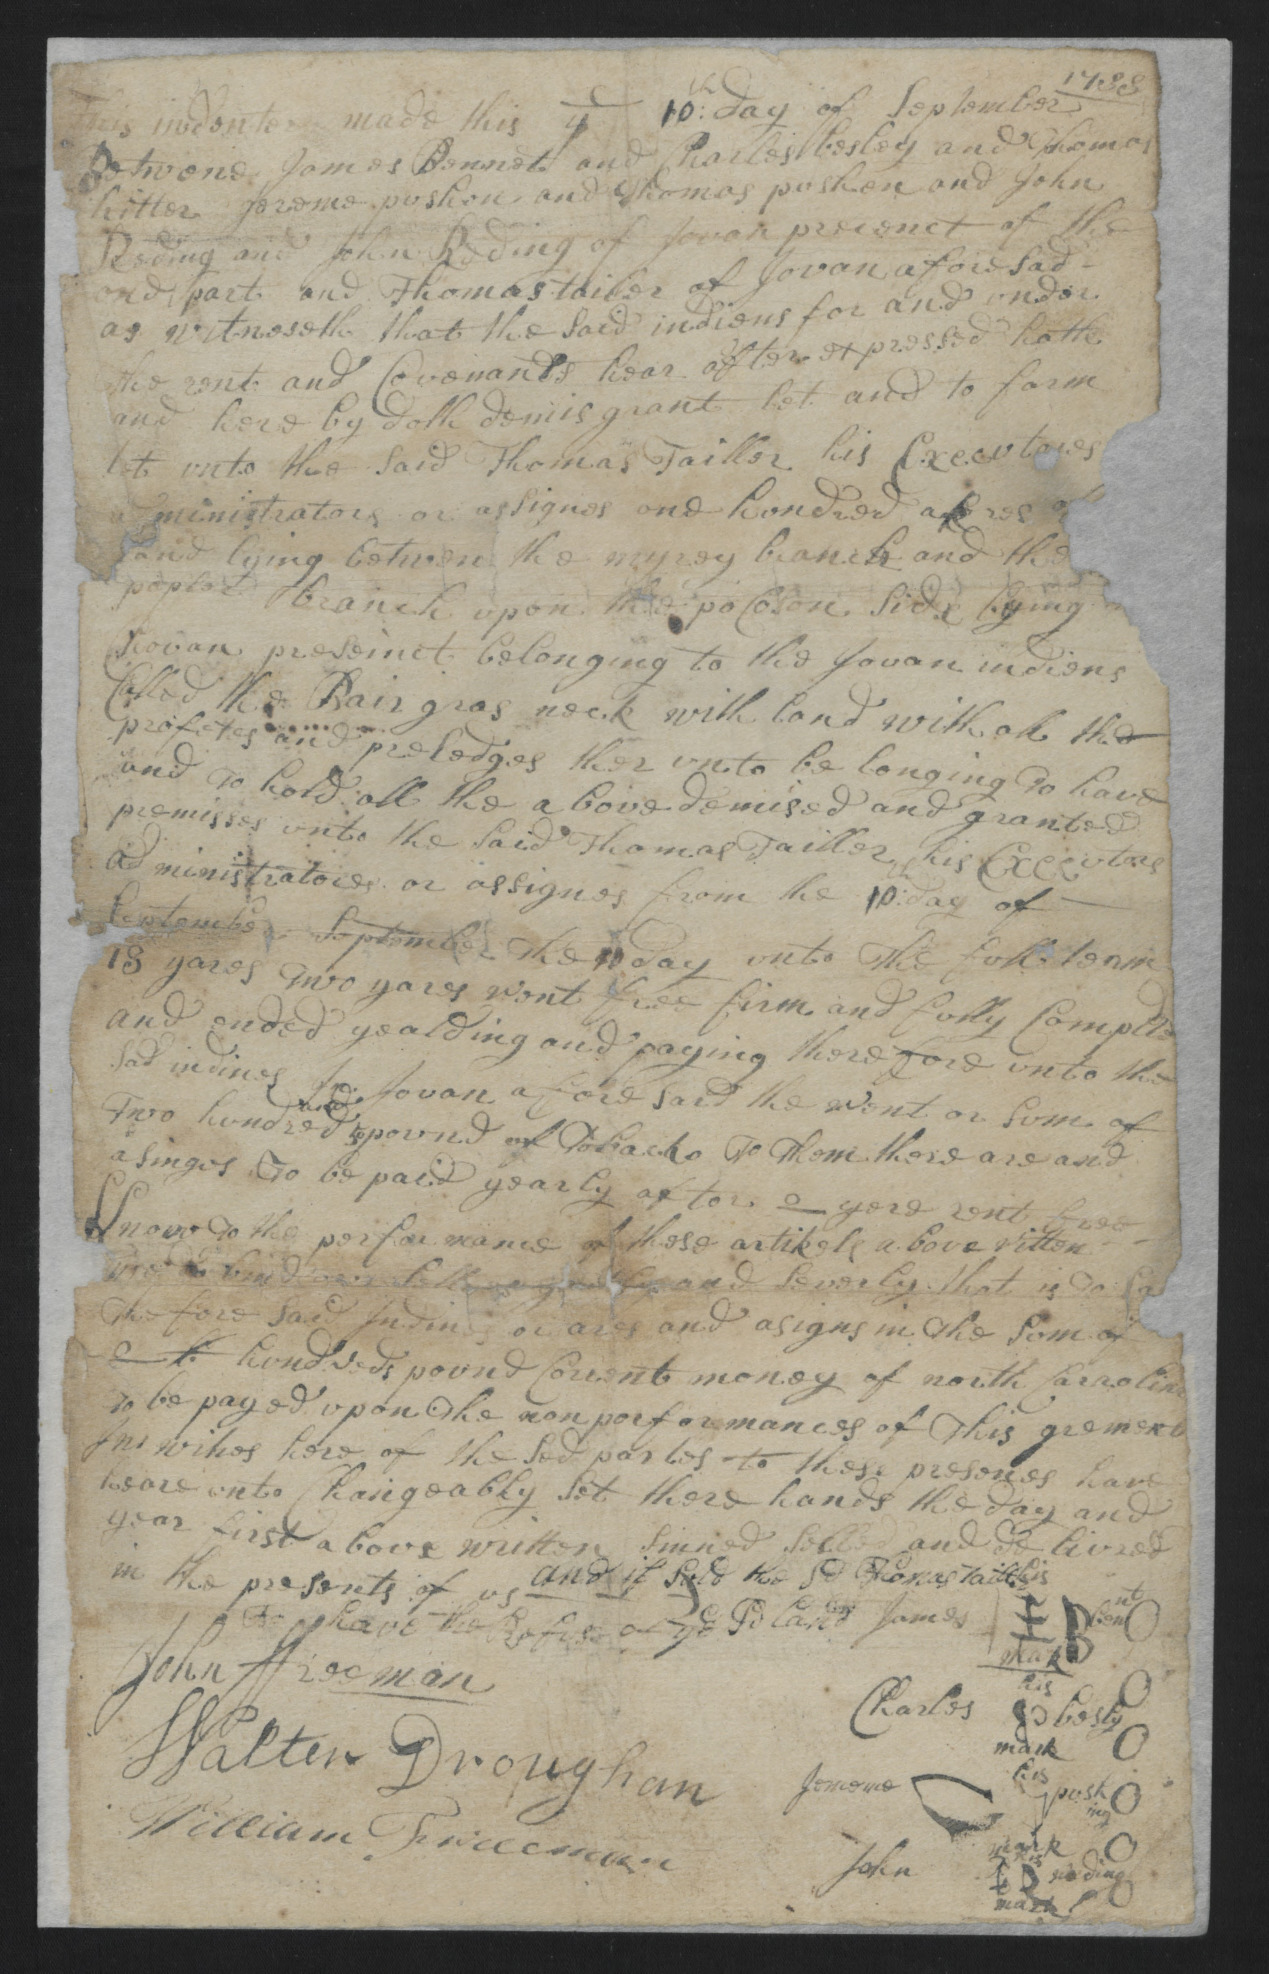 1733
This indenter made this ye 10th: day of September
Betwene James Bennet and Charles besley and Thomas
hitter Jereme pushen and Thomas pushen and John
Reding and John Reding of Jovan precenct of the
one part and Thomas tailer of Jovan afore sad
as witneseth that the said indiens for and under
the rent and Covenants hear after expressed hath
and here by doth demis grant let and to farm
let unto the said Thomas Tailler his Executores
administrators or assignes one hundred akres of
land lying betwen the myrey branch and the
popler branch upon the pocoson side lying
Chovan preseinct belonging to the Jovan indiens
Called the Bair gras neck with land with all the
profetes and preledges ther unto be longing To have
and To hold all the above demised and granted
premisses unto the said Thomas Tailler his Executors
ad ministratores or assignes from the 10th: day of
September September the 10 day unto the full term
18 yares Two yares rent free firm and fully Complte
and ended yealding and paying therefore unto the
sad indines Jovan afore said the rent or sum of
Two hundred and pownd of Tobacko To them there are and
asinges To be paid yearly after yere rent free
Know To the performance of these artikels above ritten
We bind our selfs and severly that is To sa
The fore said Indines or ares and asigns in the som of
hundreds pound Corrent money of north Carrolina
To be payed upon the nonperformances of This grement
In witnes here of the sed partes to these presenes have
heare unto Changeably set there hands the day and
year first above written sinned selled and delivred
in the presents of us and if sold the sd Thomas Tailler
To have the Refuse of ye sd Land
James his B bennt mark
John Freeman
Charles his besly mark
Walter Droughan
Jememe his pushing mark
William Freeman
John his R reding mark